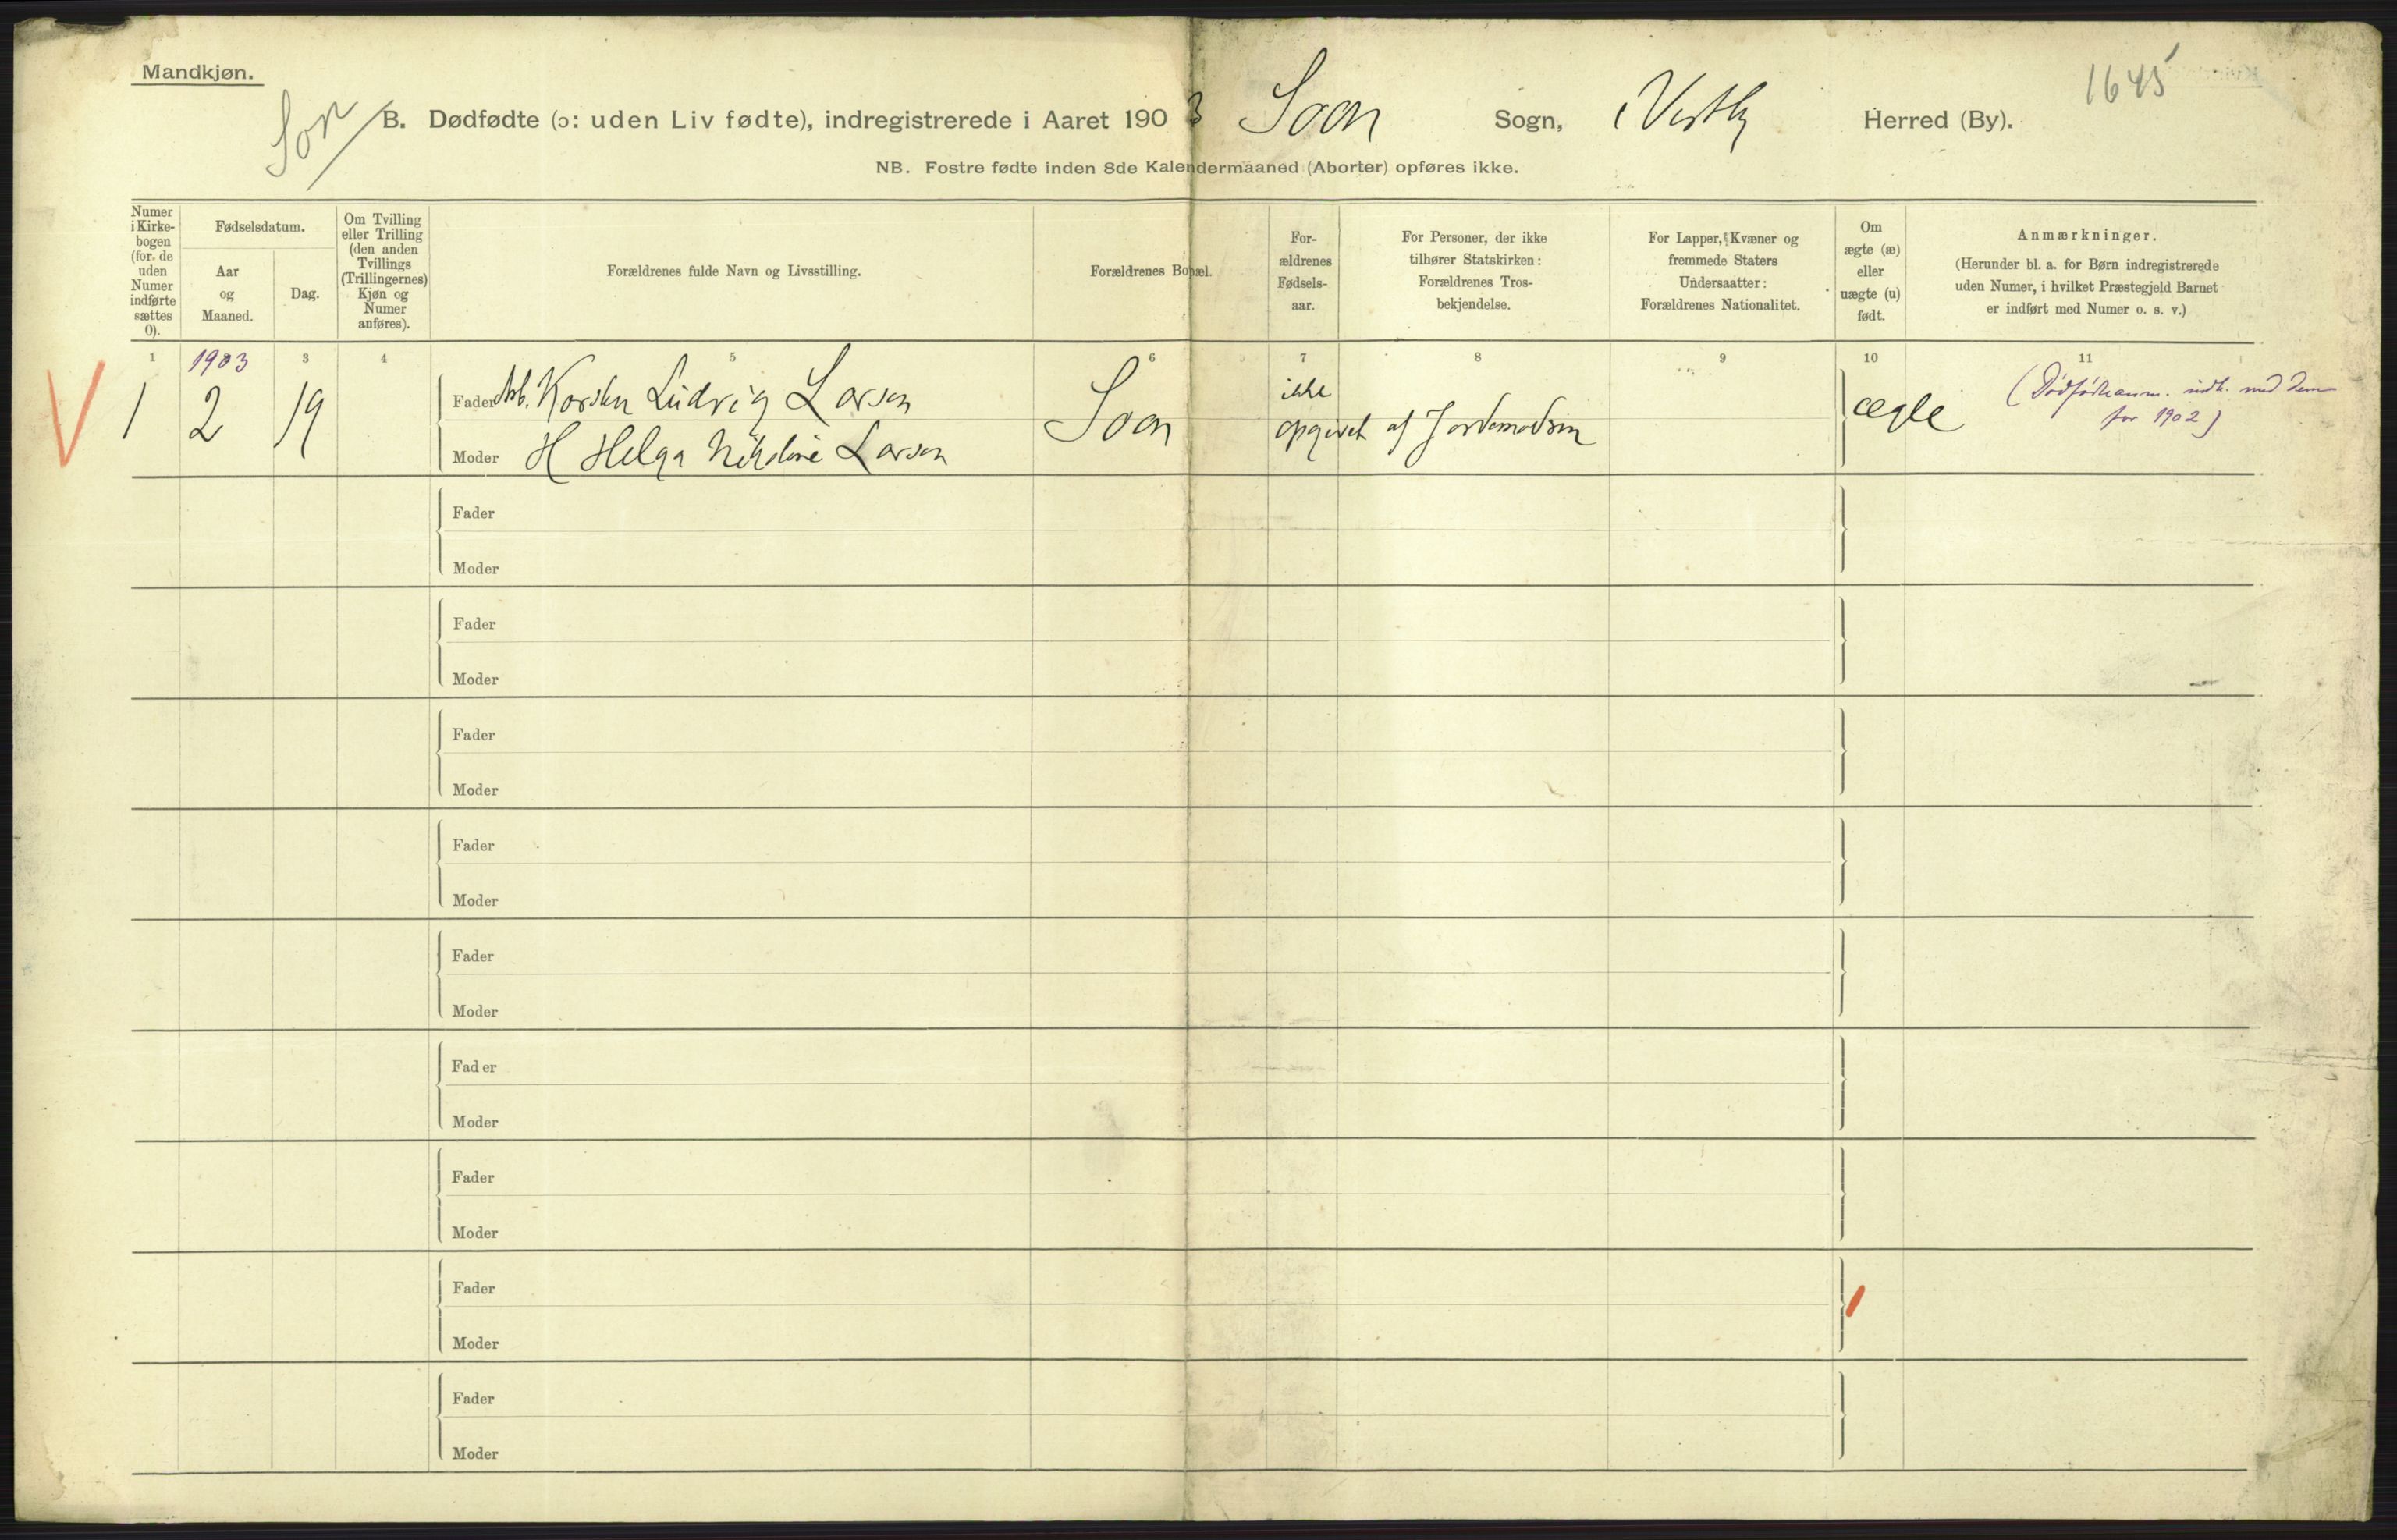 Mandkjøn.
1645
Son
B. Dødfødte (ɔ: uden Liv fødte), indregistrerede i Aaret 1903 Soon Sogn, Vestby Herred (By).
NB. Fostre fødte inden 8de Kalendermaaned (Aborter) opføres ikke.
Numer i Kirke-bogen (for de uden Numer indførte sættes 0).
Fødselsdatum.
Aar og Maaned.
Dag.
Om Tvilling eller Trilling (den anden Tvillings (Trillingernes) Kjøn og Numer anføres).
Forældrenes fulde Navn og Livsstilling.
Forældrenes Bopæl.
For-ældrenes Fødsels-aar.
For Personer, der ikke tilhører Statskirken: Forældrenes Tros-bekjendelse.
For Lapper, Kvæner og fremmede Staters Undersaatter: Forældrenes Nationalitet.
Om ægte (æ) eller uægte (u) født.
Anmærkninger.
(Herunder bl. a. for Børn indregistrerede uden Numer, i hvilket Præstegjeld Barnet er indført med Numer o. s. v.)
1 1903 3 4 5 6 7 8 9 10 11
V 1 2 19
Fader Arb. Karsten Ludvig Larsen
Moder H Helga Nikoline Larsen
Soon
ikke
opgivet af Jordemodren
ægte
(Dødfødteanm. indt. med dem
for 1902)
Fader
Moder
Fader
Moder
Fader
Moder
Fader
Moder
Fader
Moder
Fader
Moder
Fader
Moder
Fader
Moder
Fader
Moder